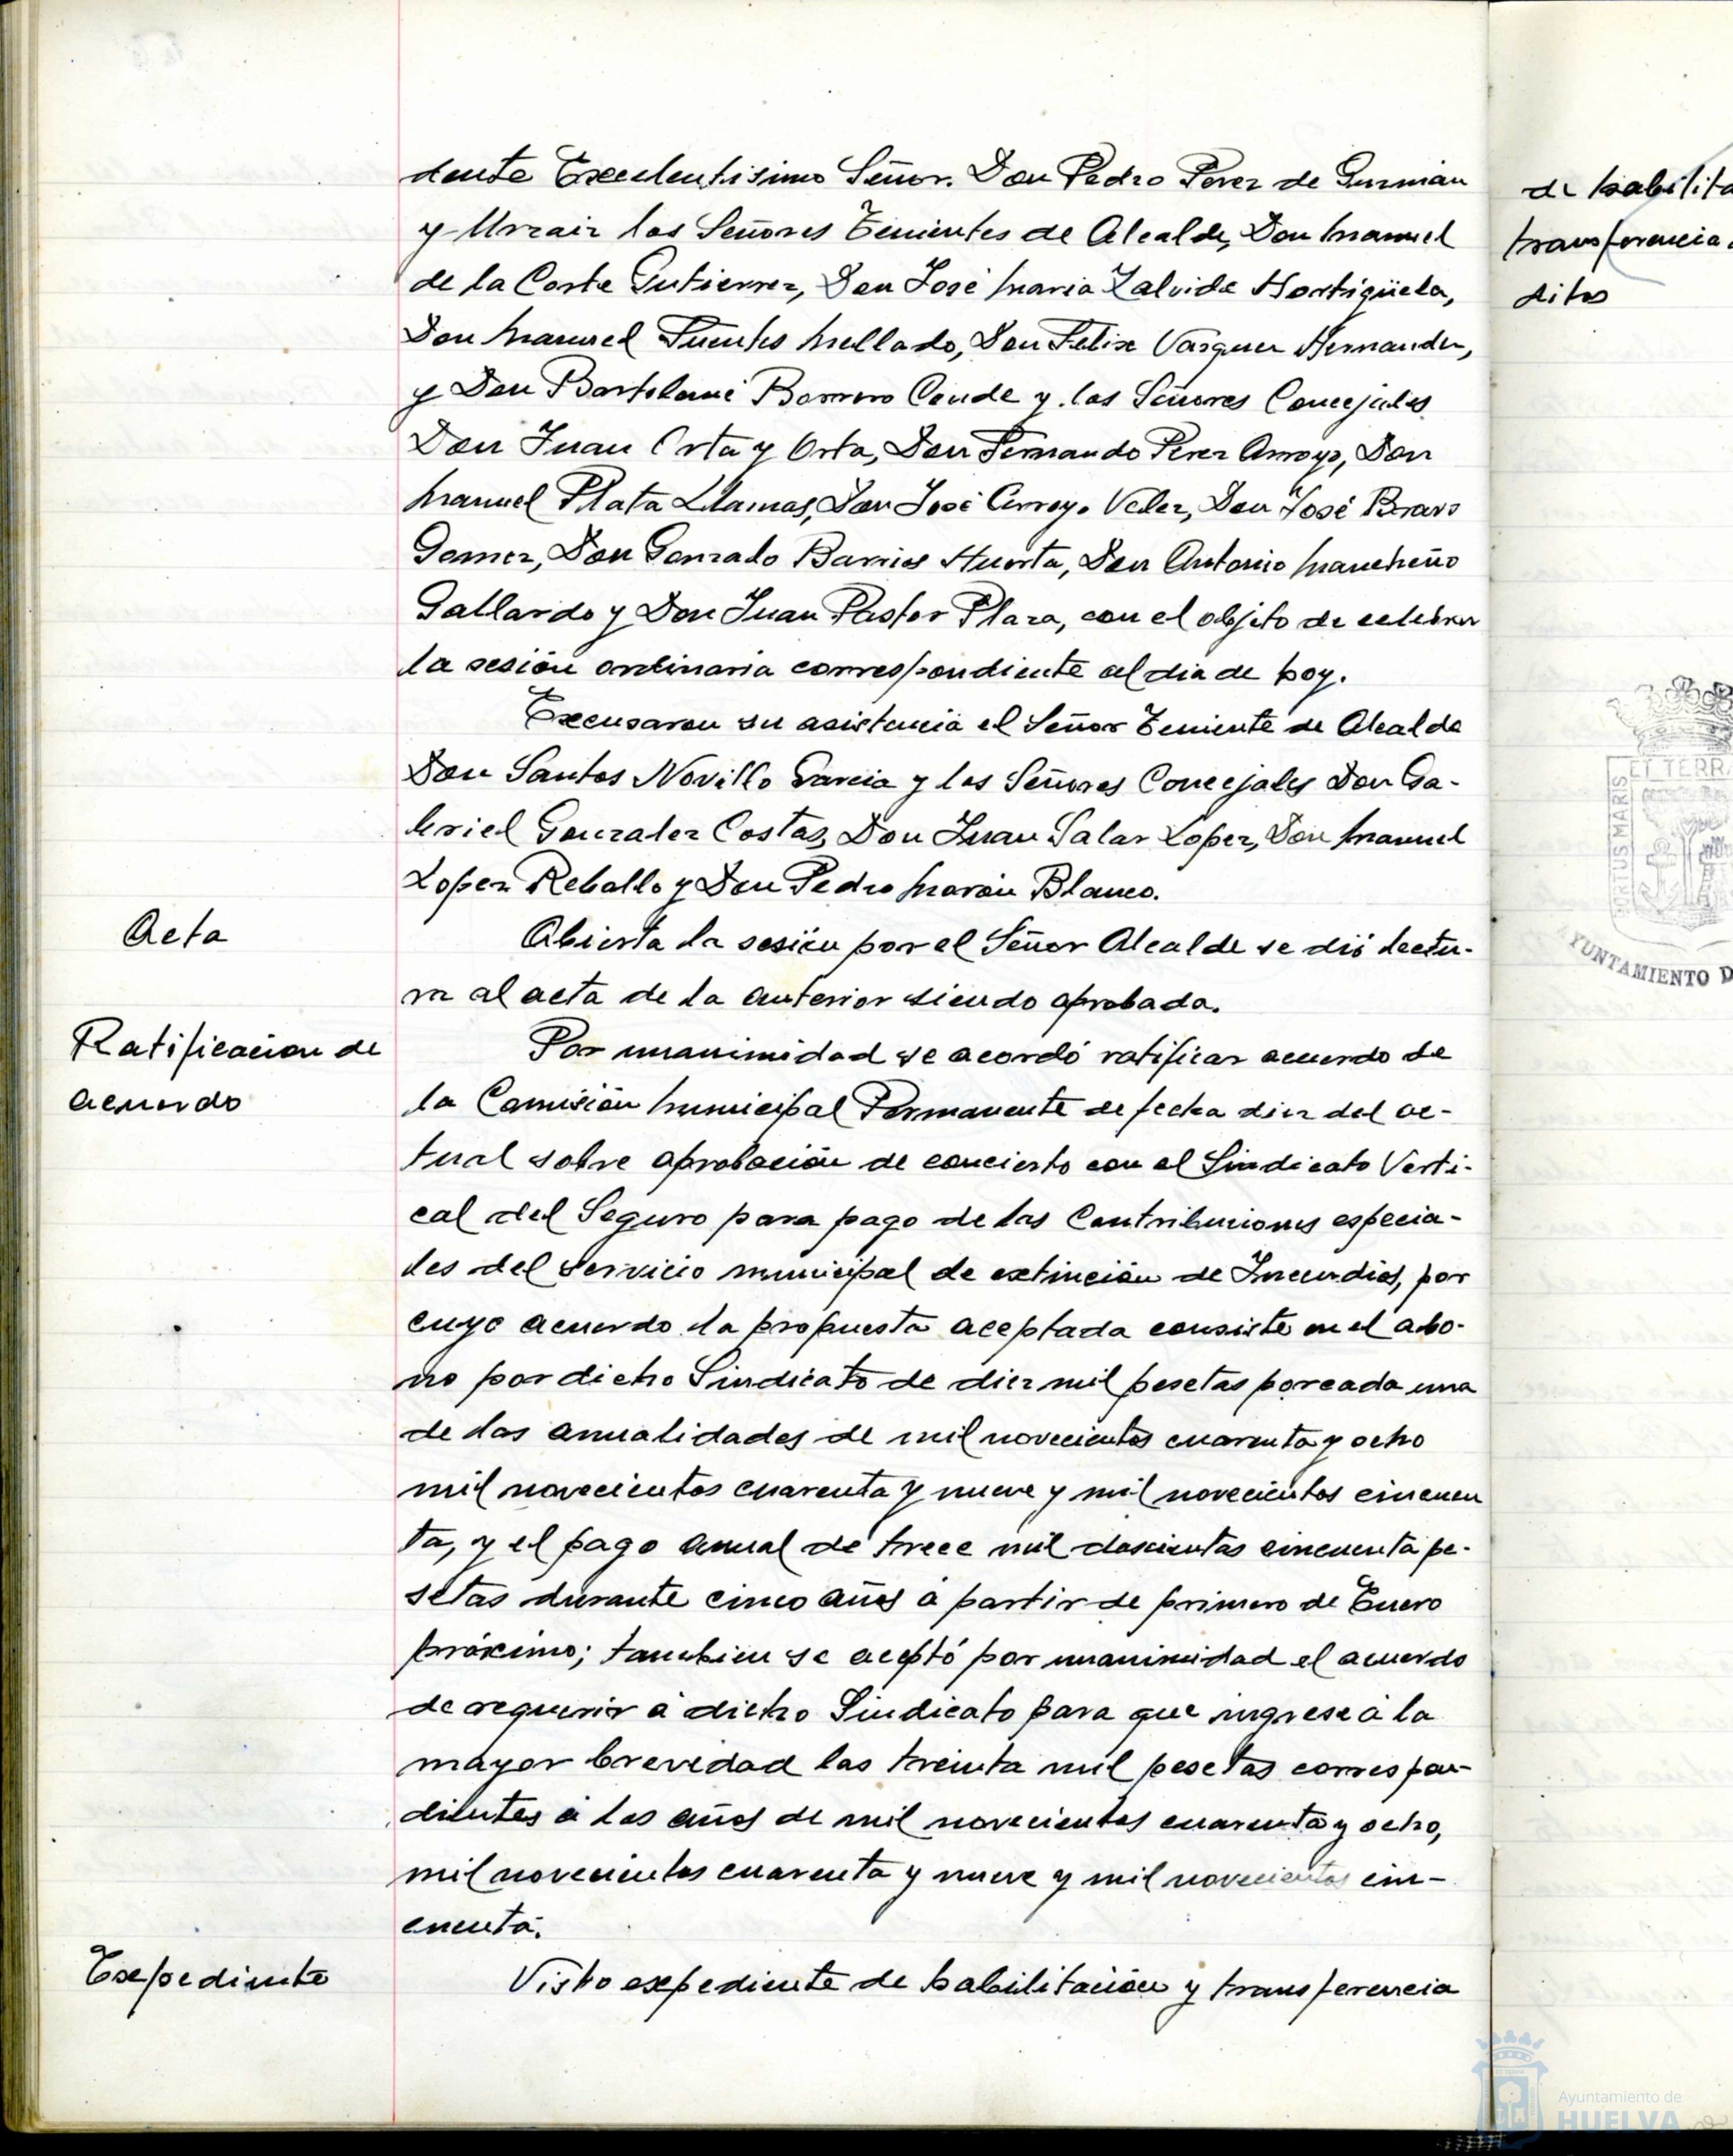 dente Excelentisimo Señor. Don Pedro Perez de Guzmán
y Urzaiz los Señores Tenientes de Alcalde, Don Manuel
de la Corte Gutierrez, Don José Maria Zalvide Hortigüela,
Don Manuel Fuentes Mellado, Don Felix Vazquez Hernandez,
y Don Bartolomé Borrero Conde y los Señores Concejales
Don Juan Orta y Orta, Don Fernando Perez Arroyo, Don
Manuel Plata Llamas, Don José Arroyo Velez, Don José Bravo
Gomez, Don Gonzalo Barrios Huerta, Don Antonio Mancheño
Gallardo y Don Juan Pastor Plaza, con el objeto de celebrar
la sesión ordinaria correspondiente al dia de hoy.
Excusaron su asistencia el Señor Teniente de Alcalde
Don Santos Novillo Garcia y los Señores Concejales Don Ga-
briel Gonzalez Costas, Don Juan Salas Lopez, Don Manuel
Lopez Rebollo y Don Pedro Morón Blanco.
Acta
Abierta la sesión por el Señor Alcalde se dió lectu-
ra al acta de la anterior siendo aprobada.
Ratificacion de
acuerdo
Por unanimidad se acordó ratificar acuerdo de
la Comisión Municipal Permanente de fecha diez del ac-
tual sobre aprobación de concierto con el Sindicato Verti-
cal del Seguro para pago de las Contribuciones especia-
les del servicio municipal de extinción de Incendios, por
cuyo acuerdo la propuesta aceptada consiste en el abo-
no por dicho Sindicato de diez mil pesetas por cada una
de las anualidades de mil novecientos cuarenta y ocho
mil novecientos cuarenta y nueve y mil novecientos cincuen
ta, y el pago anual de trece mil doscientas cincuenta pe-
setas durante cinco años á partir de primero de Enero
próximo; tambien se aceptó por unanimidad el acuerdo
de requerir á dicho Sindicato para que ingrese á la
mayor brevedad las treinta mil pesetas correspon-
dientes á los años de mil novecientos cuarenta y ocho,
mil novecientos cuarenta y nueve y mil novecientos cin-
cuenta.
Expediente
Visto expediente de habilitación y transferencia
de habilita
transferencia
ditos
ET TERR
PORTUS MARIS
YUNTAMIENTO D
Ayuntamiento de
HUELVA